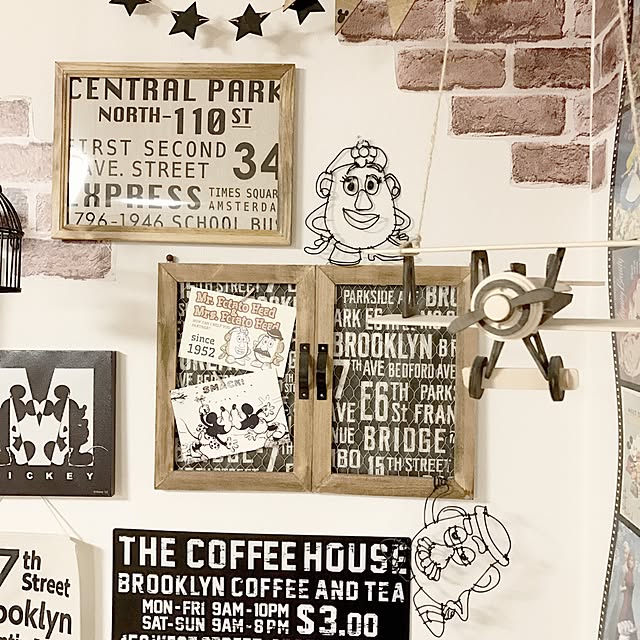 CENTRAL PARK
NORTH-110 ST
FIRST SECOND
AVE. STREET 34
EXPRESS TIMES SQUAR
AMSTERDA
1796-1946 SCHOOL BUS
Mr. Potato Head
&
Mrs. Potato Head
since
1952
SMACK!
PARKSIDE AVE BRO
PARK
BROOKLYN BR
7TH AVE BEDFORD AVE
E6TH PARK
AVE St FRAN
NUE BRIDGE
BO 15TH STREET
MICKEY
7th
Street
Brooklyn
THE COFFEE HOUSE
BROOKLYN COFFEE AND TEA
MON-FRI 9AM-10PM
SAT-SUN 9AM-8PM $3.00